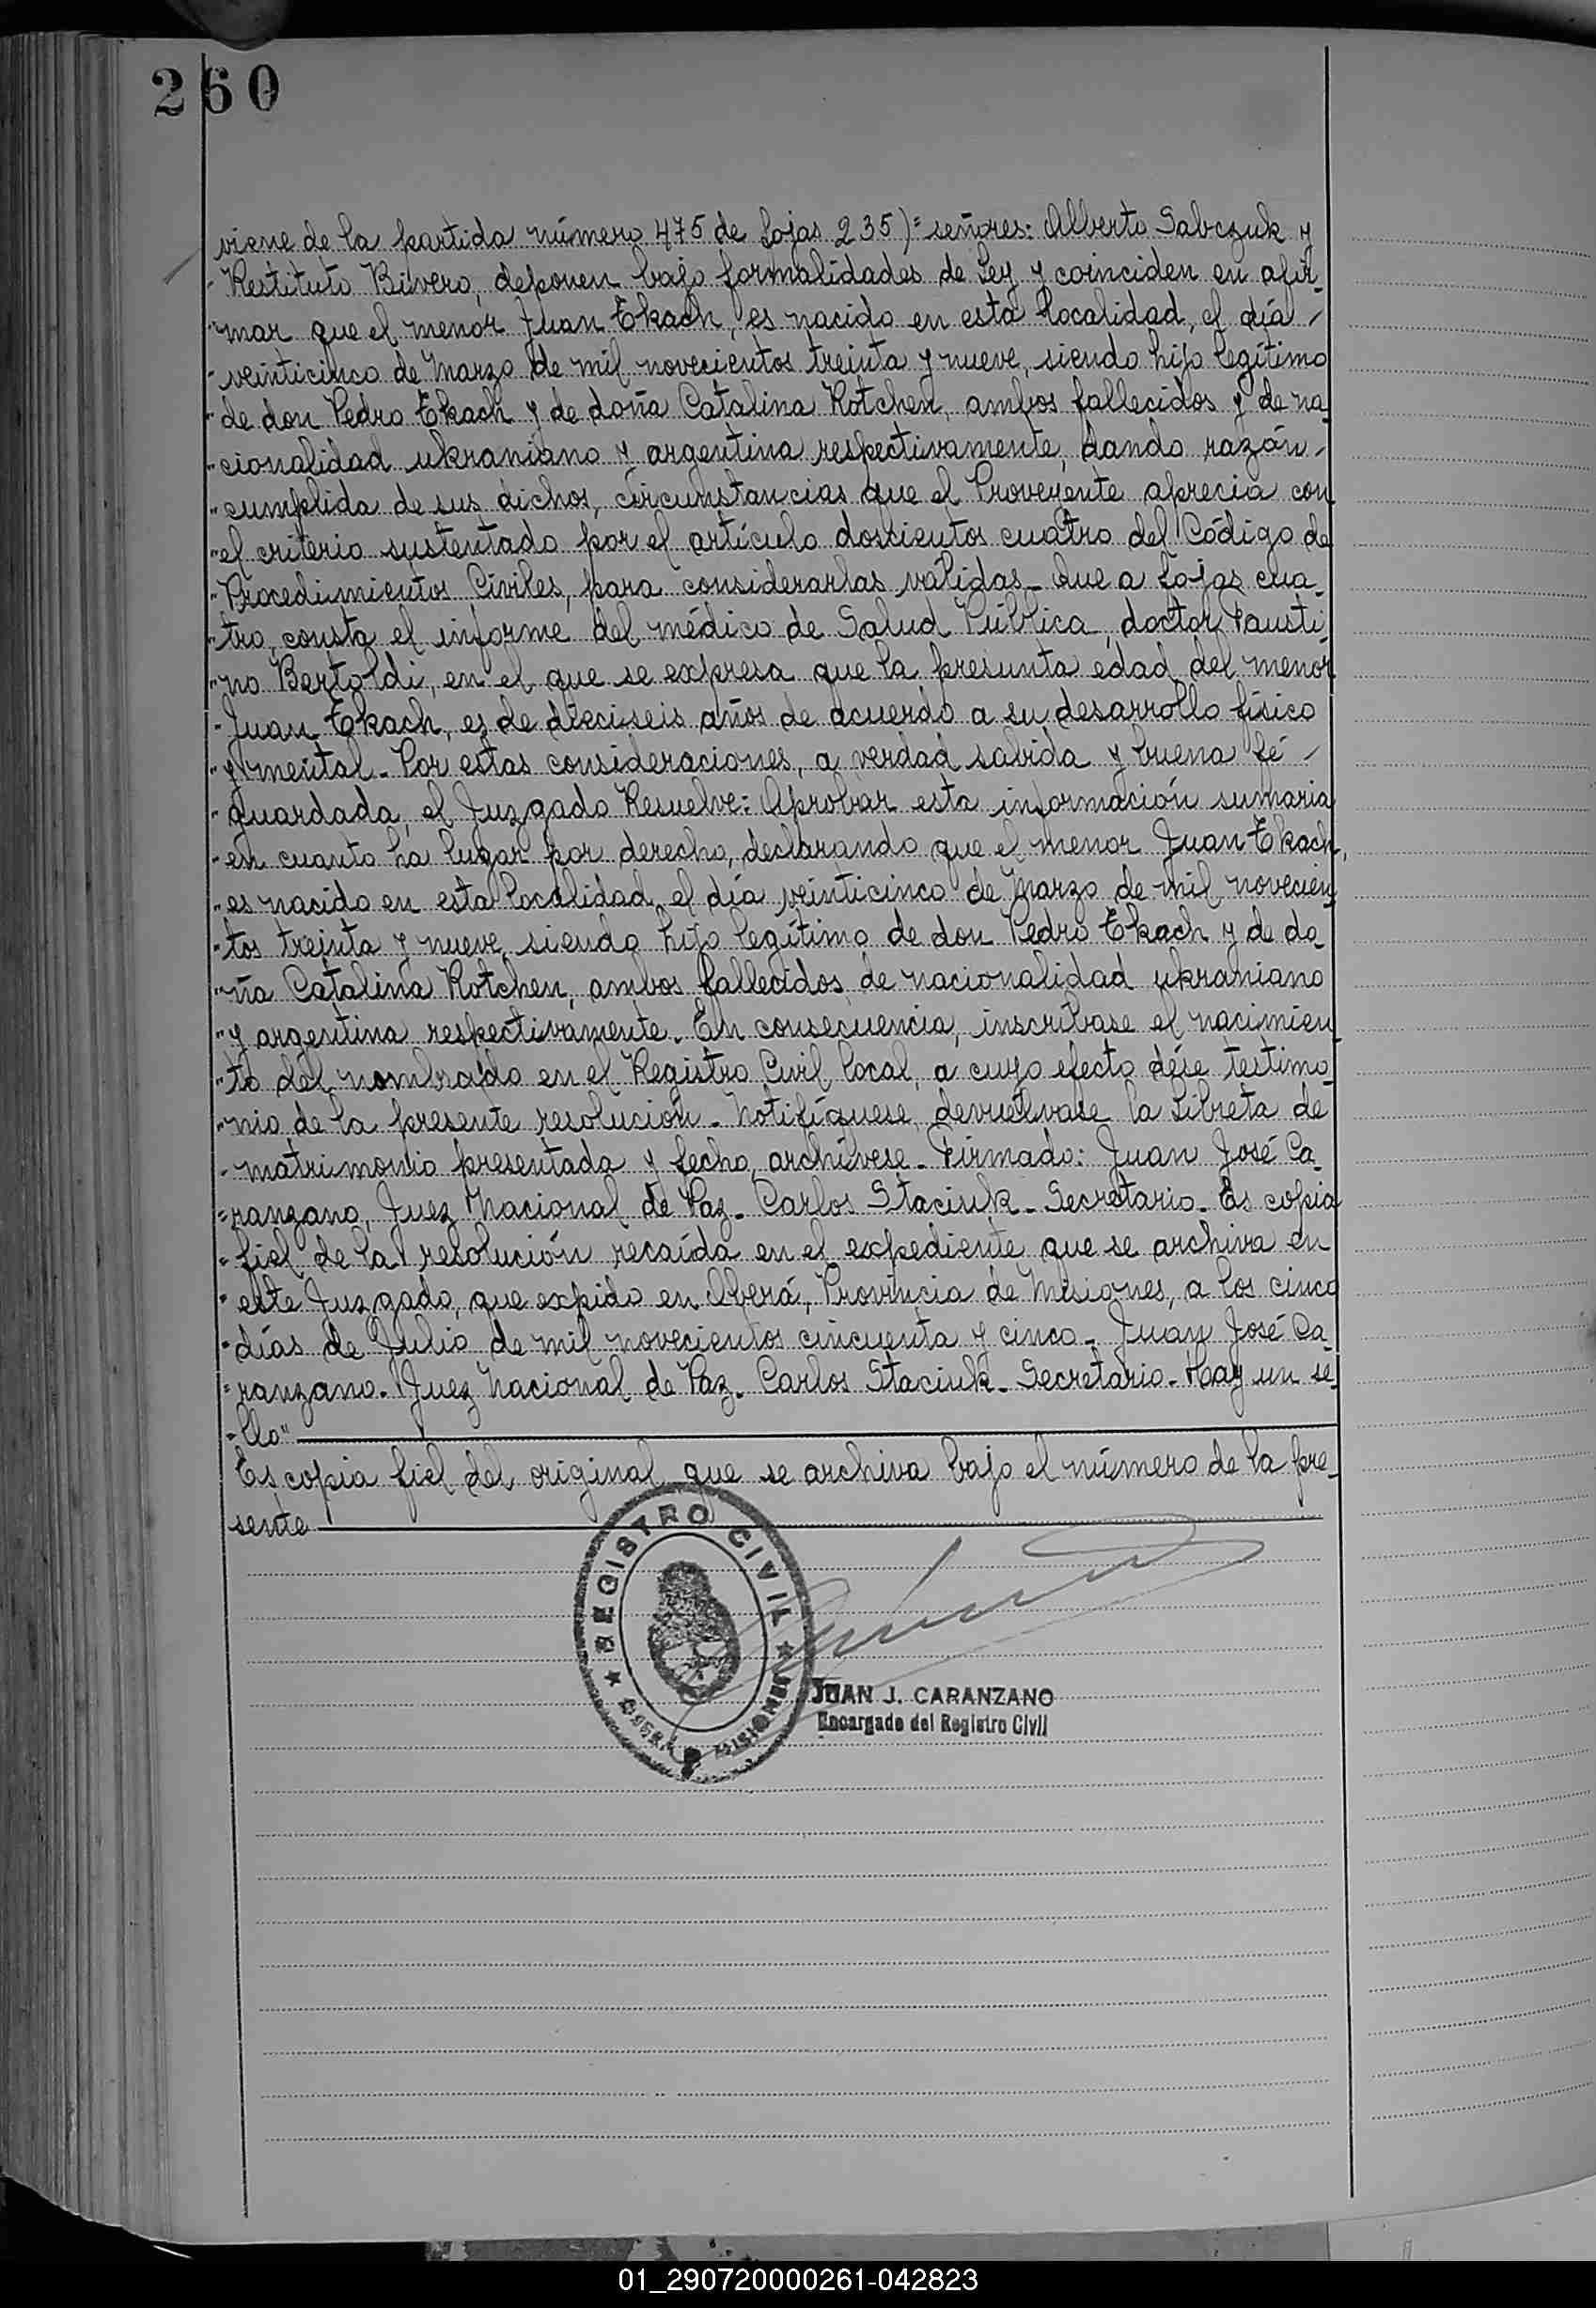 260
viene de la partida número 475 de fojas 235)= señores: Alberto Sabczuk y
- Restituto Rivero, deponen bajo formalidades de Ley y coinciden en afir-
"mar que el menor Juan Tkach, es nacido en esta localidad, el día -
- veinticinco de Marzo de mil novecientos treinta y nueve, siendo hijo legítimo
" de don Pedro Tkach y de doña Catalina Kotchen, ambos fallecidos y de na-
"cionalidad ukraniano y argentina respectivamente, dando razón -
"cumplida de sus dichos, circunstancias que el Proveyente aprecia con
"el criterio sustentado por el artículo doscientos cuatro del Código de
"Procedimientos Civiles, para considerarlas válidas- Que a fojas cua-
"tro, consta el informe del médico de Salud Pública, doctor Fausti-
"no Bertoldi, en el que se expresa que la presunta edad del menor
- Juan Tkach, es de dieciseis años de acuerdo a su desarrollo físico
"y mental- Por estas consideraciones, a verdad sabida y buena fé -
"guardada, el Juzgado Resuelve: Aprobar esta información sumaria
"en cuanto ha lugar por derecho, declarando que el menor Juan Tkach,
"es nacido en esta localidad, el día veinticinco de Marzo de mil novecien-
"tos treinta y nueve, siendo hijo legítimo de don Pedro Tkach y de do-
"ña Catalina Kotchen, ambos fallecidos de nacionalidad ukraniano
"y argentina respectivamente- En consecuencia, inscríbase el nacimien-
"to del nombrado en el Registro Civil local, a cuyo efecto dése testimo-
"nio de la presente resolución- Notifíquese, devuélvase la Libreta de
- matrimonio presentada y fecho, archívese- Firmado: Juan José Ca-
=ranzano, Juez Nacional de Paz- Carlos Staciuk- Secretario- Es copia
= fiel de la resolución recaída en el expediente que se archiva en
" este Juzgado, que expido en Oberá, Provincia de Misiones, a los cinco
"días de Julio de mil novecientos cincuenta y cinco- Juan José Ca-
=ranzano- Juez Nacional de Paz- Carlos Staciuk- Secretario- Hay un se-
-llo"
Es copia fiel del original que se archiva bajo el número de la pre-
sente
REGISTRO CIVIL
OBERA MISIONES
JUAN J. CARANZANO
Encargado del Registro Civil
01_290720000261-042823